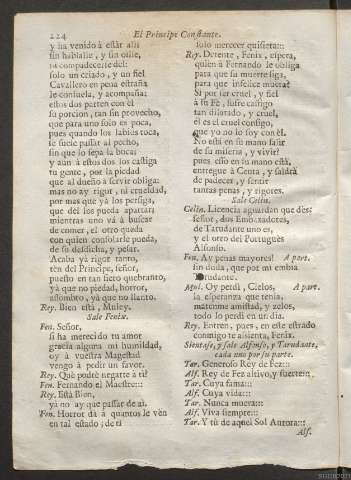 224
El Principe Constante.
y ha venido à estàr assi
sin hablalle, y sin oille,
ni compadecerse del:
solo un criado, y un fiel
Cavallero en pena estraña
le consuela, y acompaña:
estos dos parten con èl
su porcion, tan sin provecho,
que para uno solo es poca,
pues quando los labios toca,
se suele passar al pecho,
sin que lo sepa la boca;
y aun à estos dos los castiga
tu gente, por la piedad
que al dueño à servir obliga:
mas no ay rigor, ni crueldad,
por mas que yà los persiga,
que del los pueda apartar;
mientras uno và à buscar
de comer, el otro queda
con quien consolarse pueda,
de su desdicha, y pesar.
Acaba yà rigor tanto,
tèn del Principe, señor,
puesto en tan fiero quebranto,
yà que no piedad, horror,
assombro, yà que no llanto.
Rey. Bien està, Muley.
Sale Fenix.
Fen. Señor,
si ha merecido tu amor
gracia alguna mi humildad,
oy à vuestra Magestad
vengo à pedir un favor.
Rey. Què podrè negarte à ti?
Fen. Fernando el Maestre:::
Rey. Està Bien,
yà no ay que passar de aì.
Fen. Horror dà à quantos le vèn
en tal estado; de ti
solo merecer quisiera:::
Rey. Detente, Fenix, espera,
quien à Fernando le obliga
para que su muerte siga,
para que infelice muera?
Si por ser cruel, y fiel
à su Fè, sufre castigo
tan dilatado, y cruel,
èl es el cruel consigo,
que yo no lo soy con èl.
No està en su mano salir
de su miseria, y vivir?
pues esso en su mano està,
entregue à Ceuta, y saldrà
de padecer, y sentir
tantas penas, y rigores.
Sale Celin.
Celin. Licencia aguardan que dès
señor, dos Embaxadores,
de Tarudante uno es,
y el otro del Portuguès
Alfonso.
Fen. Ay penas mayores! A part.
sin duda, que por mi embia
Tarudante.
Mul. Oy perdi, Cielos, A part.
la esperanza que tenia,
matenme amistad, y zelos,
todo lo perdi en un dia.
Rey. Entren, pues, en este estrado
conmigo te assienta, Fenix.
Sientase, y sale Alfonso, y Tarudante,
cada uno por su parte.
Tar. Generoso Rey de Fez:::
Alf. Rey de Fez altivo, y fuerte:::
Tar. Cuya fama:::
Alf. Cuya vida:::
Tar. Nunca muera:::
Alf. Viva siempre:::
Tar. Y tù de aquel Sol Aurora:::
Alf.